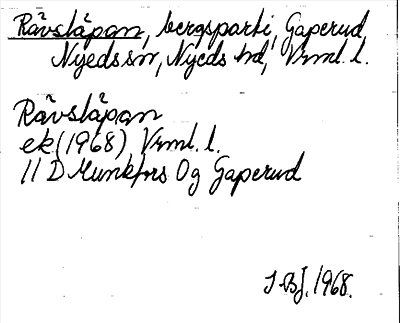 Rävsläpan, bergsparti, Gaperud,
Nyeds sn, Nyeds hd, Vrml. l.
Rävsläpan
ek (1968) Vrml. l.
11 D Munkfors 0g Gaperud
J BJ. 1968.